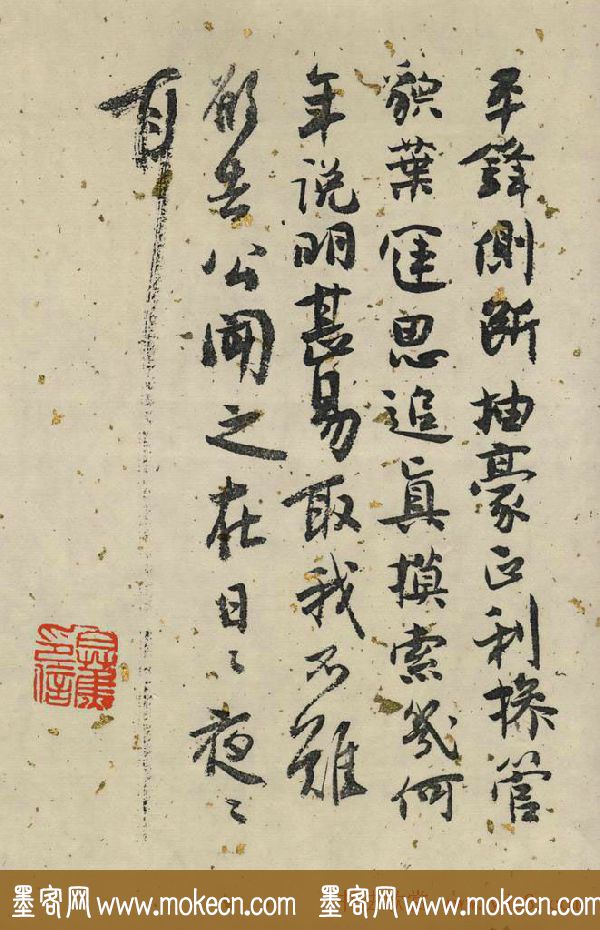 平鋒側斫抽豪正利操管
貌葉運思追真摸索幾何
年说明甚易取我不難
欲告公開之在日〻夜〻
耳
印信
墨客网 www.mokecn.com 墨客网 www.mokecn.com